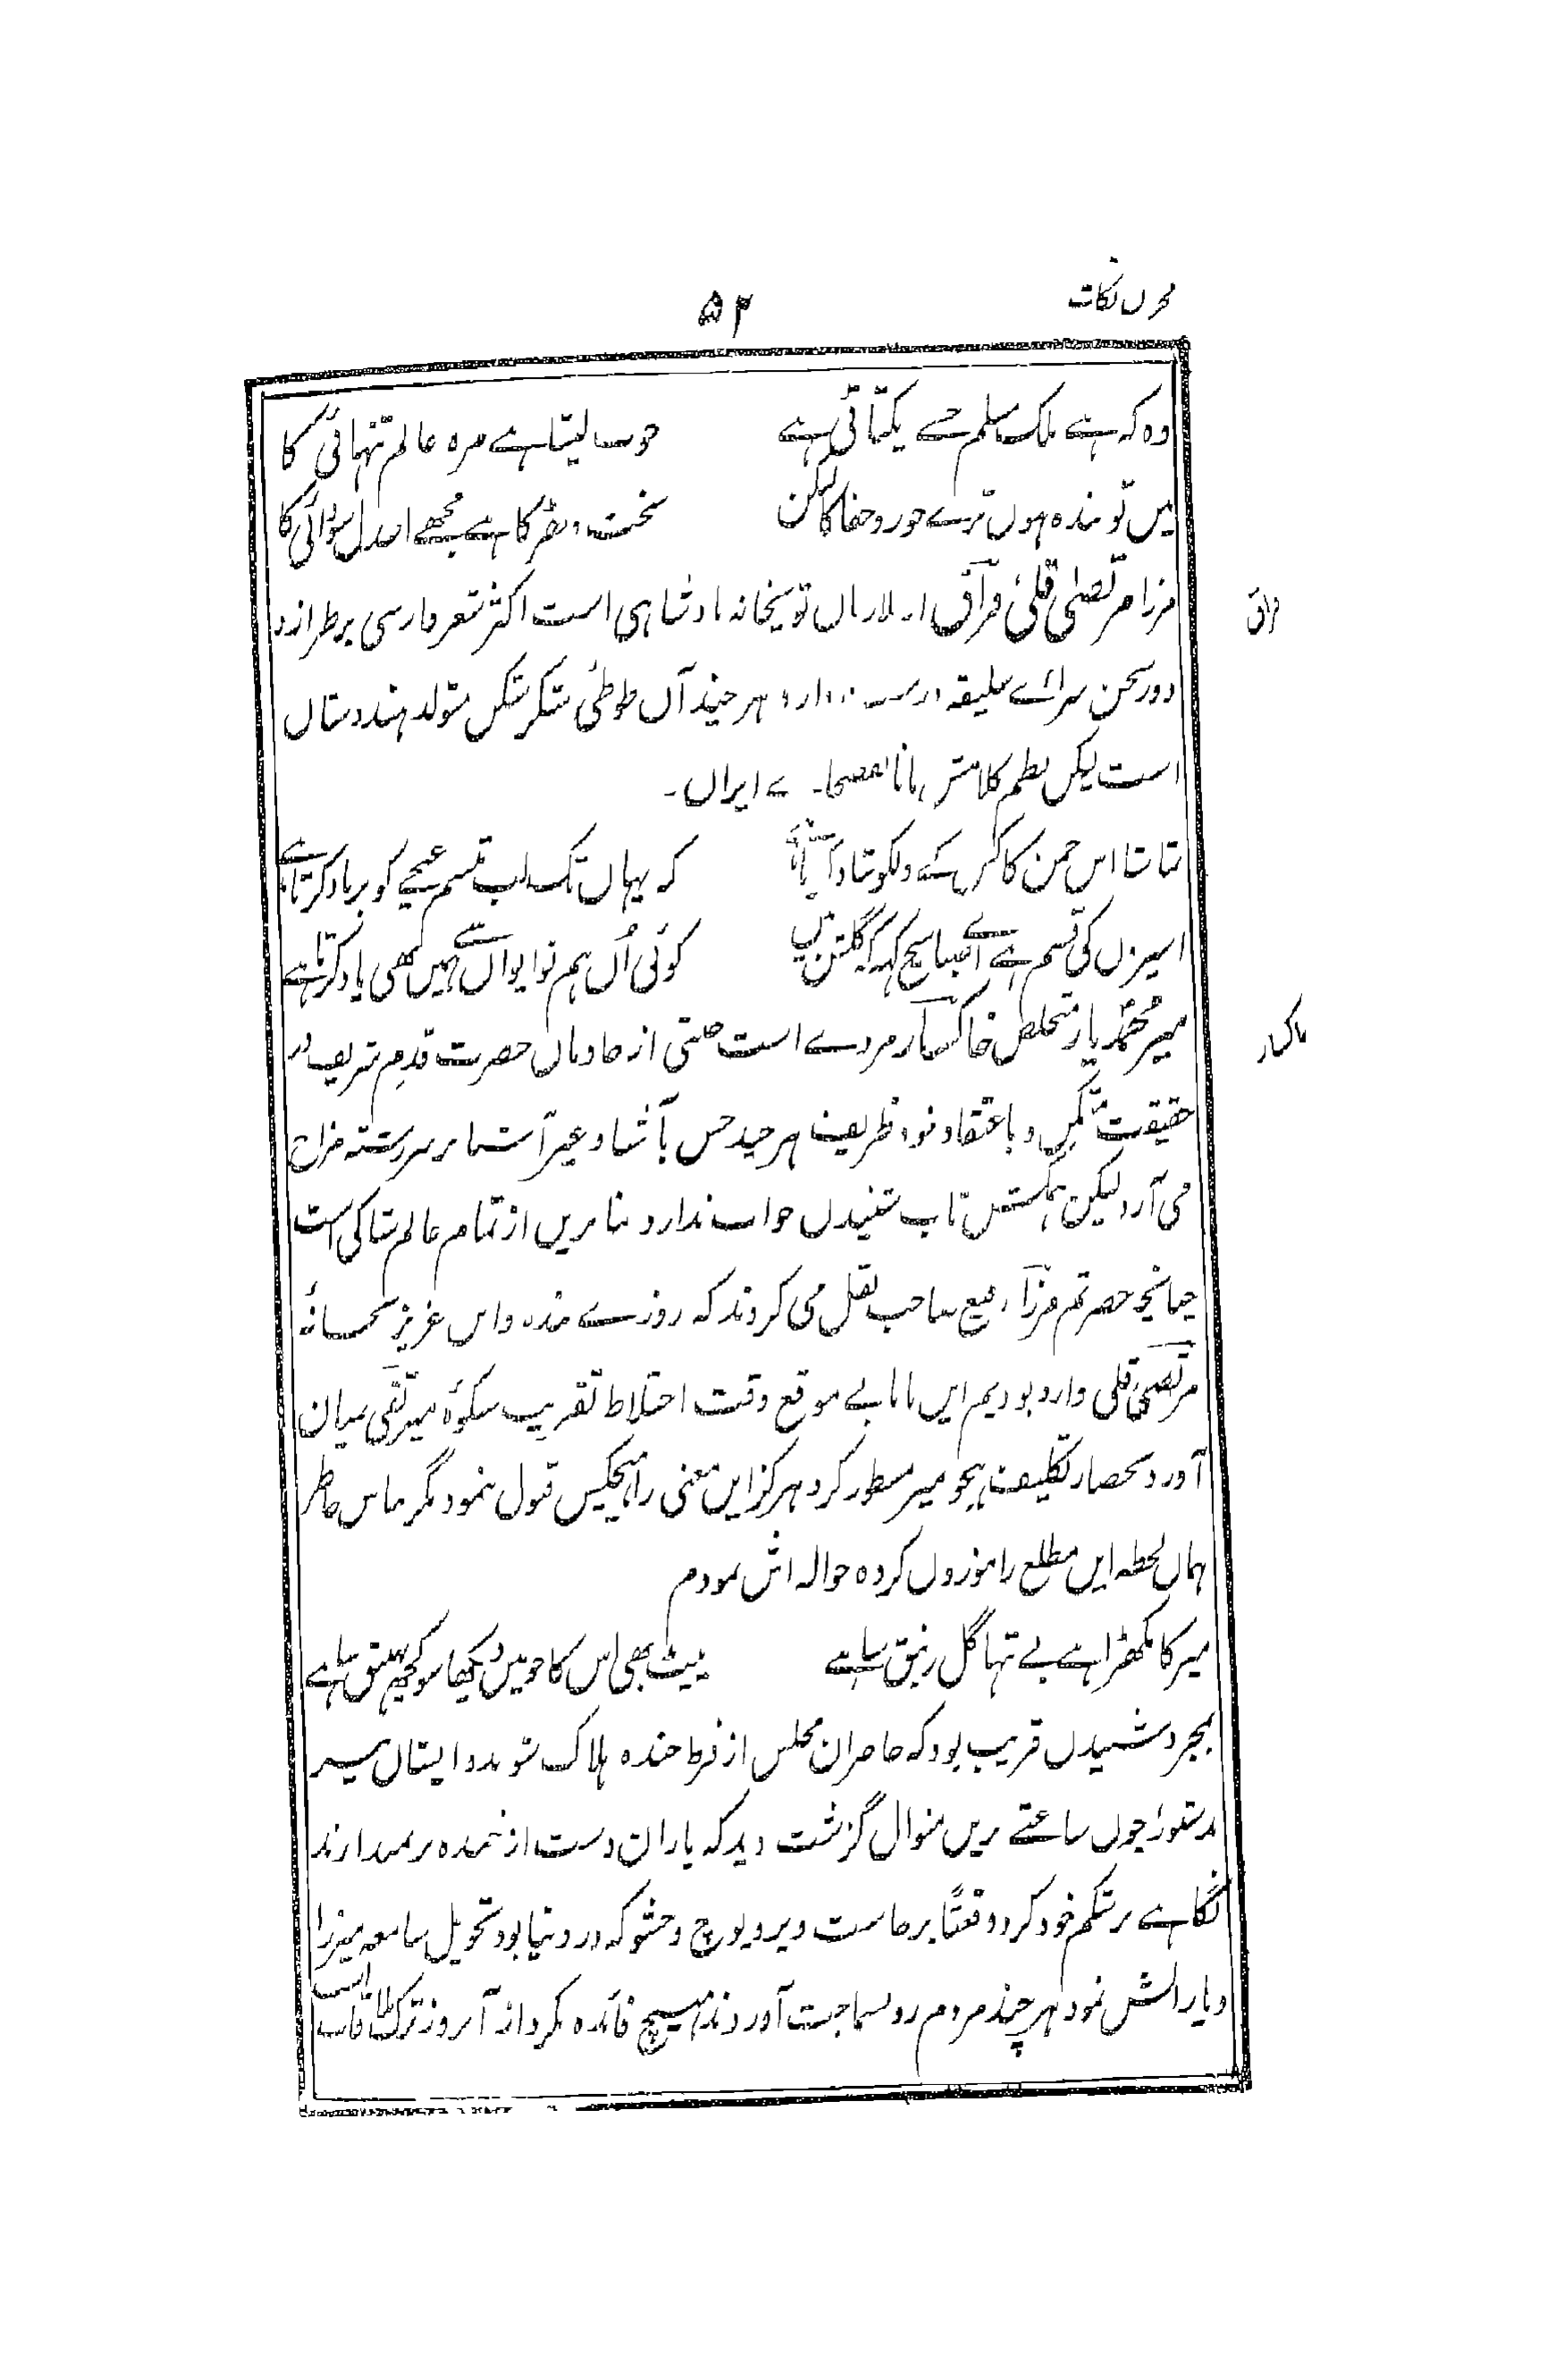 مخزن نکات
۵۲
وہ کہ ہے ملک مسلم جسے یکتائی ہے خوب لیتا ہے مزہ عالم تنہائی کا
میں تو بندہ ہوں ترے جور و جفا کا لیکن سخت دھڑکا ہے مجھے اس دل سودائی کا
فراق
مرزا مرتضیٰ قلی فراق از ملازمان توپخانہ بادشاہی است اکثر شعر فارسی بر طرازد
و در سخن سرائے سلیقہ درست دارد ہر چند آں طوطئ شکر شکن متولد ہندوستان
است لیکن نظم کلامش بفصحائے ایران۔
تماشا اس چمن کا کس کے دل کو شاد کرتا ہے کہ یہاں تک لب تبسم غنچے کو برباد کرتا ہے
اسیروں کی قسم ہے اے صبا سچ کہہ کہ گلشن میں کوئی اُن ہم نوایوں سے ہمیں بھی یاد کرتا ہے
خاکسار
میر محمد یار متخلص خاکسار مردے است متقی از خادمان حضرت قدم شریف در
حقیقت متمکن و باعتقاد خود ظریف ہر چند حسن با آشنا و غیر آشنا بر سر رشتہ مزاح
می آرد لیکن ہمتش تاب شنیدن جواب ندارد بنا بریں از تمام عالم شاکی است
چنانچہ حضرتم مرزا رفیع صاحب نقل می کردند کہ روزے بندہ و اس عزیز بخانۂ
مرتضیٰ قلی وارد بودیم ایں بابا بے موقع وقت اختلاط تقریب شکوۂ میر تقی میان
آورد بحضار تکلیف ہجو میر مسطور کرد ہرگز ایں معنی را ہیچکس قبول ننمود مگر بپاس خاطر
ہماں لحظہ ایں مطلع را موزوں کردہ حوالہ اش نمودم
میر کا مکھڑا ہے بے تہا گل زنبق سا ہے پیٹ بھی اس کا جو میں دیکھا سو کچھ بق سا ہے
بمجرد شنیدن قریب بود کہ حاضران مجلس از فرط خندہ ہلاک شوند و ایشاں میر
بدستور چوں ساعتے بریں منوال گزشت دید کہ یاران دست از خندہ بر نمیدارند
نگاہے بر شکم خود کرد و قعتاً برخاست و ہر پوچ و حشو کہ در دنیا بود تحویل سامعہ میرزا
و یارانش نمود ہر چند مردم رو بسماجت آوردند ہیچ فائدہ نکرد از آں روز ترک ملاقات است